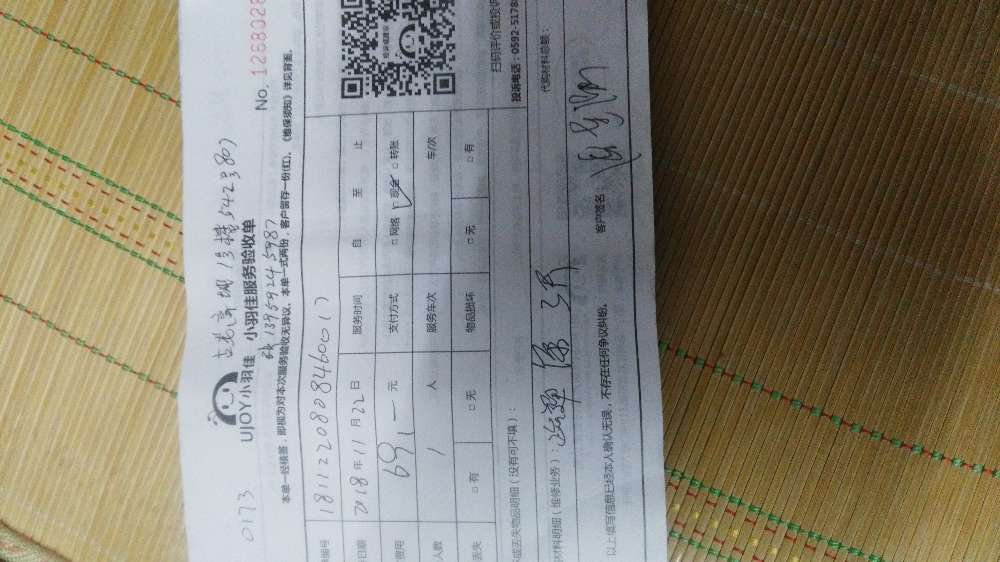 0173
UJOY小羽佳 小羽佳服务验收单
13959245987
No. 1268028
本单一经续签，即视为对本次服务验收无异议。本单一式两份，客户留存一份(红)。《维保须知》详见背面。
编号 1811220808460017
日期 2018年11月22日 服务时间 自 至 止
费用 69.— 元 支付方式 □网络 ☑现金 □转账
人数 1 人 服务车次 车/次
丢失 □有 □无 物品损坏 □无 □有
扫码评价或投诉
投诉电话：0592-5178
或丢失物品明细（没有可不填）：
材料明细（维修业务）：
代购材料总额：
以上填写信息已经本人确认无误，不存在任何争议纠纷。 客户签名：